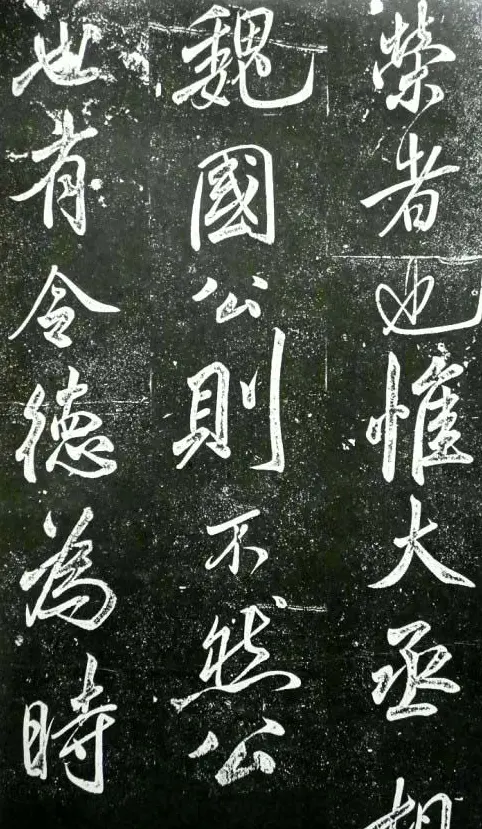 榮者也惟大丞相
魏國公則不然公
也有令德為時